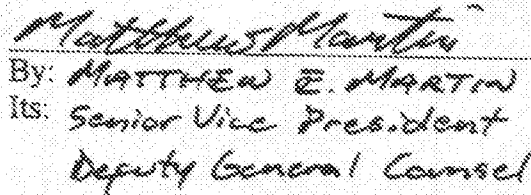 Matthew Martin
By: MATTHEW E. MARTIN
Its: Senior Vice President
Deputy General Counsel